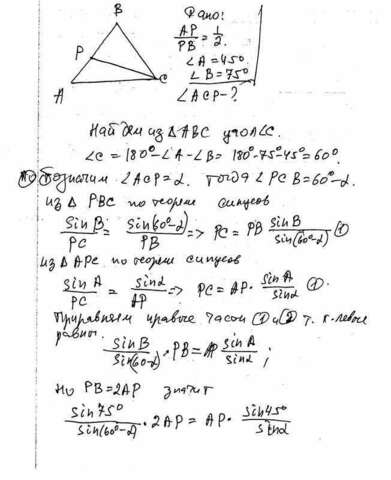 B
P
A
C
Дано:
AP/PB = 1/2
∠A = 45°
∠B = 75°
∠ACP - ?
Найдем из ΔABC угол C.
∠C = 180° - ∠A - ∠B = 180° - 75° - 45° = 60°.
Обозначим ∠ACP = α. Тогда ∠PCB = 60° - α.
из Δ PBC по теорем синусов
sin B/PC = sin(60° - α)/PB => PC = PB sin B/sin(60° - α) ①
из Δ APC по теорем синусов
sin A/PC = sin α/AP => PC = AP · sin A/sin α ①.
Приравняем правые части ① и ② т. к. левые
равны.
sin B/sin(60 - α) · PB = AP sin A/sin α ;
но PB = 2AP значит
sin 75°/sin(60° - α) · 2AP = AP · sin 45°/sin α